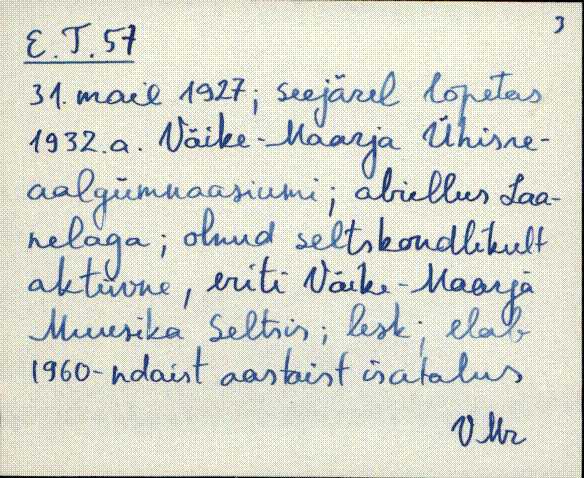 3
E.T.57
31. mail 1927; seejärel lõpetas
1932.a. Väike-Maarja Ühisre-
aalgümnaasiumi; abiellus Laa-
nelaga; olnud seltskondlikult
aktiivne, eriti Väike-Maarja
Muusika Seltsis; lesk; elab
1960-ndaist aastaist isatalus
VMr